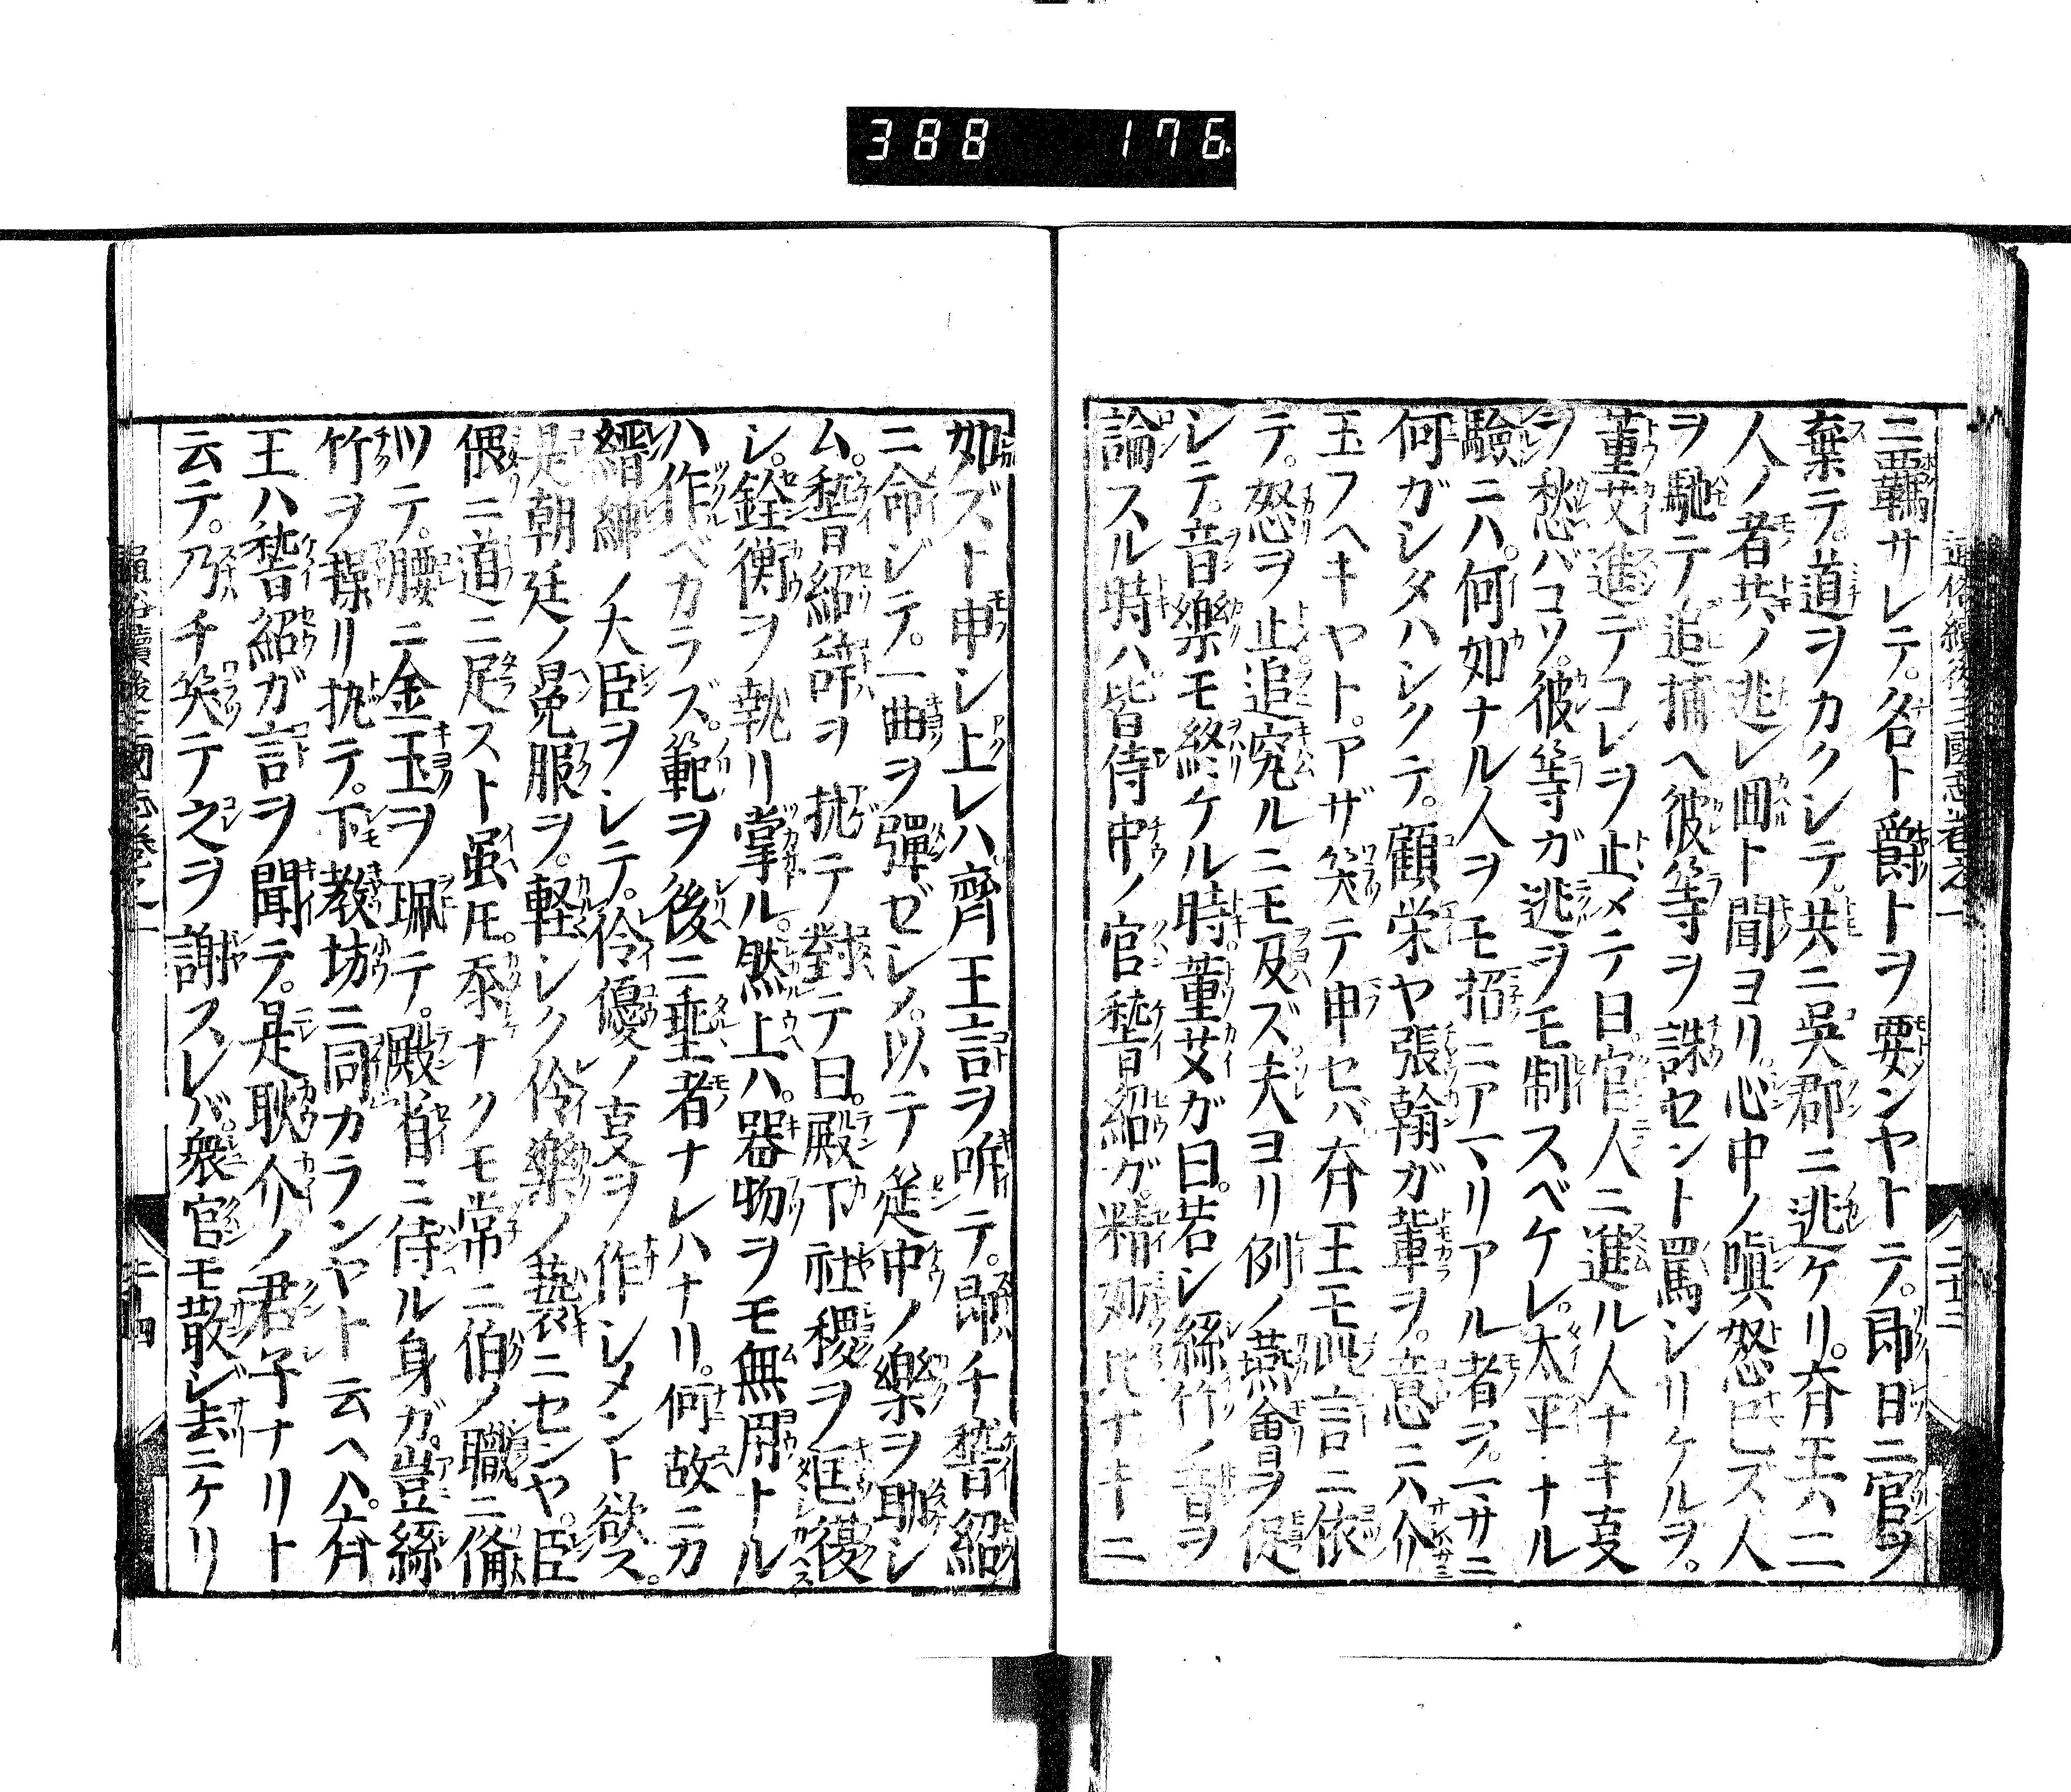 388 176
通俗續後三國志卷之一
二十三
ニ羈サレテ。名ト爵トヲ要ンヤトテ。即日ニ官ヲ
棄テ。道ヲカクシテ。共ニ吳郡ニ逃ケリ。斉王ハ二
人ノ者共ノ逃レ回ト聞ヨリ。心中ノ嗔怒巳ズ人
ヲ馳テ追捕ヘ彼等ヲ誅セント罵シリケルヲ。
董艾進デコレヲ止メテ曰。官人ニ進ル人ナキ叓
ヲ愁バコソ。彼等ガ逃ヲモ制スベケレ。太平ナル
驗ニハ。何如ナル人ヲモ招ニアマリアル者ヲ。マサニ
何ガシタハシクテ。顧栄ヤ張翰ガ輩ヲ。意ニハ介
玉フヘキヤト。アザ笑テ申セバ斉王モ此言ニ依
テ。怒ヲ止追究ルニモ及ズ夫ヨリ例ノ燕會ヲ促
シテ。音樂モ終ケル時。董艾ガ曰。若シ絲竹ノ音ヲ
論スル時ハ皆侍中ノ官嵆紹ガ。精妙ナキニ
如ズト申シ上レハ齊王言ヲ听テ。即チ嵆紹
ニ命ジテ。一曲ヲ彈ゼシメ。以テ筵中ノ樂ヲ助シ
ム。嵆紹辞ヲ抗テ對テ曰。殿下社稷ヲ匡復
シ。銓衡ヲ執リ掌ル。然上ハ。器物ヲモ無用トル
ハ作ベカラズ。範ヲ後ニ垂者ナレハナリ。何故ニカ
縉紳ノ大臣ヲシテ。伶優ノ叓ヲ作シメント欲ス。
是朝廷ノ冕服ヲ。軽シク伶樂ノ褻ニセンヤ。臣
偶ニ道ニ足ストト雖𪜈。忝ナクモ常ニ伯ノ職ニ備
ツテ。腰ニ金玉ヲ珮テ。殿省ニ侍ル身ガ。豈絲
竹ヲ操リ執テ。下教坊ニ同カランヤト云ヘハ。斉
王ハ嵆紹ガ言ヲ聞テ。是耿介ノ君子ナリト
云テ。乃チ笑テ之ヲ謝スレバ。衆官モ散ジ去ニケリ
通俗續後三國志卷之一
二十四